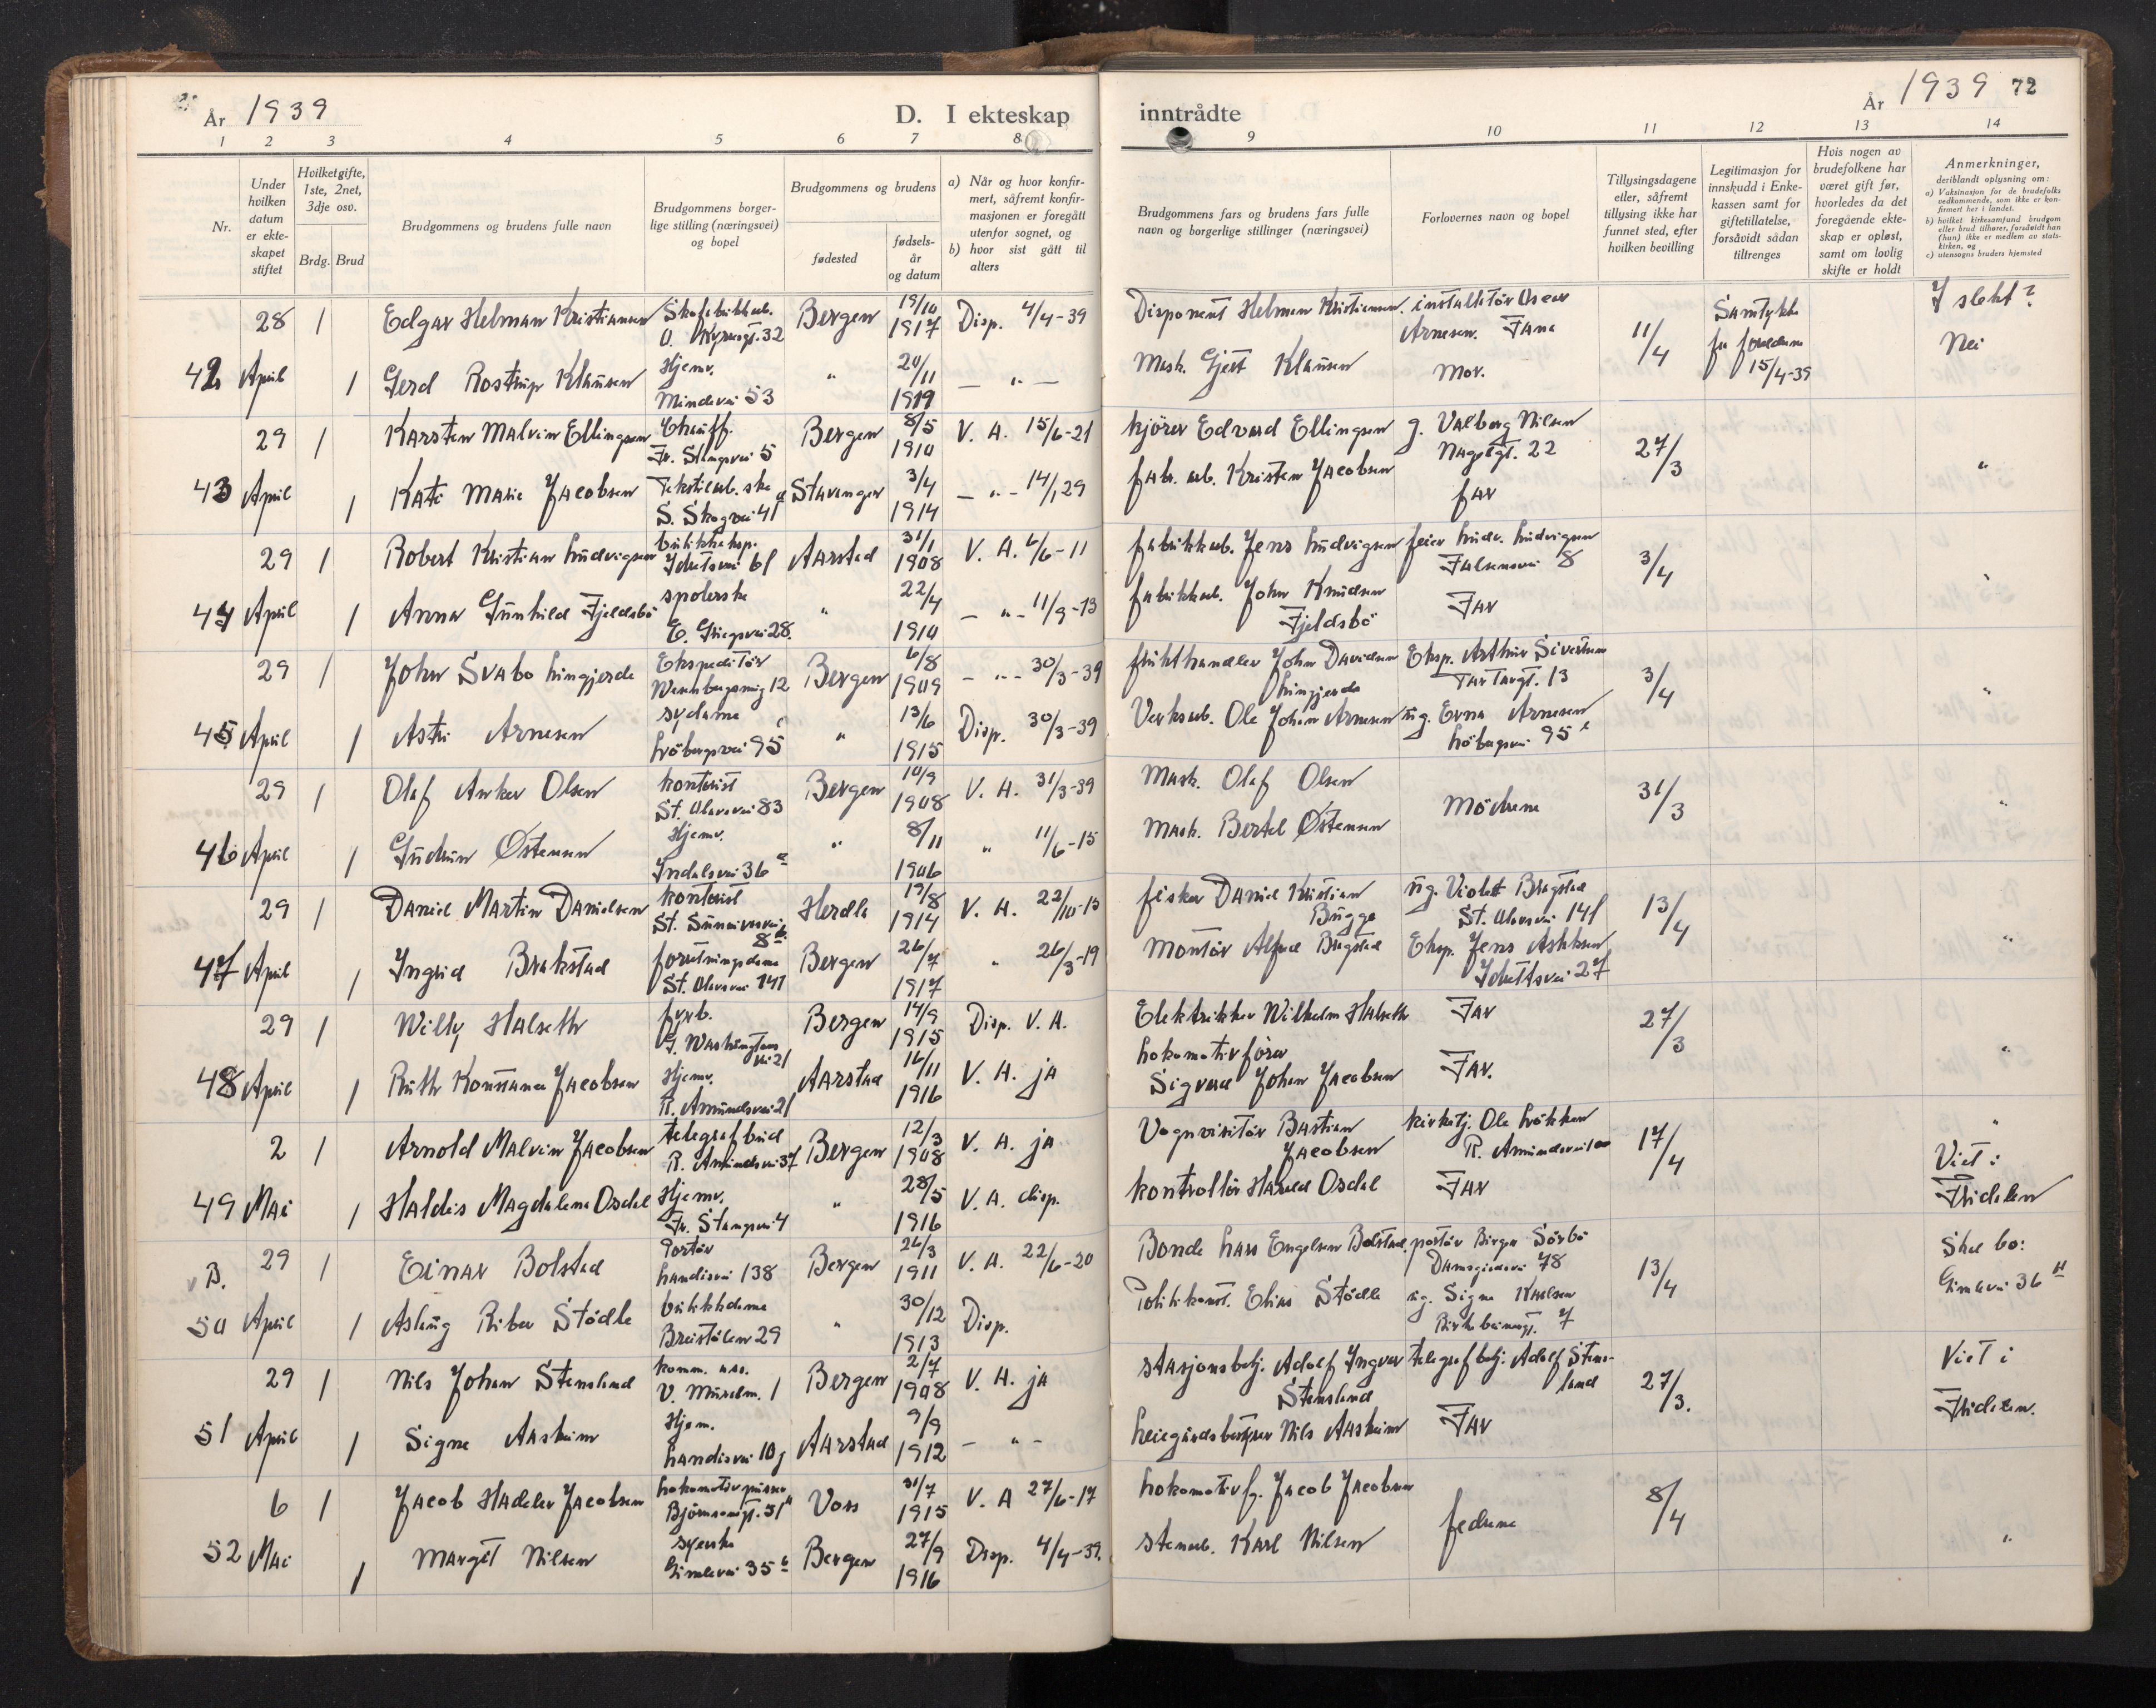 År 1939
D. I ekteskap
inntrådte
År 1939 72
1 2 3 4 5 6 7 8 9 10 11 12 13 14
Nr.
Under hvilken datum er ekteskapet stiftet
Hvilket gifte, 1ste, 2net, 3dje osv.
Brdg. Brud
Brudgommens og brudens fulle navn
Brudgommens borgerlige stilling (næringsvei) og bopel
Brudgommens og brudens
fødested
fødselsår og datum
a) Når og hvor konfirmert, såfremt konfirmasjonen er foregått utenfor sognet, og
b) hvor sist gått til alters
Brudgommens fars og brudens fars fulle navn og borgerlige stillinger (næringsvei)
Forlovernes navn og bopel
Tillysingsdagene eller, såfremt tillysing ikke har funnet sted, efter hvilken bevilling
Legitimasjon for innskudd i Enkekassen samt for giftetillatelse, forsåvidt sådan tiltrenges
Hvis nogen av brudefolkene har været gift før, hvorledes da det foregående ekteskap er opløst, samt om lovlig skifte er holdt
Anmerkninger, deriblandt oplysning om:
a) Vaksinasjon for de brudefolks vedkommende, som ikke er konfirmert her i landet.
b) hvilket kirkesamfund brudgom eller brud tilhører, forsåvidt han (hun) ikke er medlem av statskirken, og
c) utensogns bruders hjemsted
28 1 Edgar Helman Kristiansen Bergen 19/10 1917 Disp. 4/4-39 Disponent Helman Kristiansen. installatør Oscar Arnesen. Fana 11/4 Samtykke 15/4-39 I slekt?
42 April 1 Gerd Rostrup Klausen Hjemv. Mindevei 53 " 20/11 1919 — " — Mask. Gjert Klausen Mor. Nei
29 1 Karsten Malvin Ellingsen Chauff. Fr. Stangsvei 5 Bergen 8/5 1910 V. A. 15/6-21 kjører Edvard Ellingsen g. Valborg Nilsen 22 27/3
43 April 1 Kate Marie Jacobsen S. Skogvei 41 Stavanger 3/4 1914 — " - 14/1 29 fabr. arb. Kristen Jacobsen far "
29 1 Robert Kristian Ludvigsen butikkeksp. 61 Aarstad 31/1 1908 V. A. 6/6-11 fabrikkarb. Jens Ludvigsen feier Ludv. Ludvigsen Falsensvei 8 3/4
44 April 1 Anna Gunhild Fjeldsbö spolerske E. Griegsvei 28. " 22/4 1910 — " - 11/9-13 fabrikkarb. John Knudsen Fjeldsbö Far
29 1 John Svabo Lingjerde Ekspeditör 12 Bergen 6/8 1909 — " - 30/3-39 frukthandler John Davidsen Lingjerde Eksp. Arthur Sivertsen 13 3/4
45 April 1 Astri Arnesen sydame Löbergsvei 95 " 13/6 1915 Disp. 30/3-39 Verksarb. Ole Johan Arnesen ug. Erna Arnesen Löbergsvei 95 "
29 1 Olaf Anker Olsen kontorist St. Olavsvei 83 Bergen 10/9 1908 V. A. 31/3-39 Mask. Olaf Olsen Mödrene 31/3
46 April 1 Gudrun Østensen Hjemv. Indalsvei 36 a " 8/11 1906 " 11/6-15 Mask. Bertel Østensen "
29 1 Daniel Martin Danielsen kontorist St. Sunnivasvei 8 Herdla 19/8 1914 V. A. 22/10-13 fisker Daniel Kristian Bugge ug. Violet Bragstad St. Olavsvei 141 13/4
47 April 1 Ingrid Brakstad forretningsdame St. Olavsvei 141 Bergen 26/7 1917 " 26/3-19 Montör Alfred Eksp. Jens 27 "
29 1 Willy Halseth fyrb. G. Washingtons vei 21 Bergen 14/9 1915 Disp. V. A. Elektrikker Wilhelm Halseth Far 27/3
48 April 1 Ruth Konstance Jacobsen Hjemv. R. Amundsvei 21 Aarstad 16/11 1916 V. A. ja Lokomotivförer Sigvard Johan Jacobsen Far. "
2 1 Arnold Malvin Jacobsen telegrafbud R. Amundsvei 37 Bergen 12/3 1908 V. A. ja Vognvisitör Bastian Jacobsen kirketj. Ole Lökken R. Amundsvei 17/4 "
49 Mai 1 Haldis Magdalena Osdal Hjemv. Fr. Stangsvei 4 " 28/5 1916 V. A. disp. kontrollör Harald Osdal Far Viet i Fridalen
v B. 29 1 Einar Bolstad Portör Landåsvei 138 Bergen 26/3 1911 V. A. 22/6-20 Bonde Lars Engelsen Bolstad, portör Birger Sörbö Damsgårdsvei 78 13/4 Skal bo: Gimlevei 36
50 April 1 Aslaug Riber Stödle butikkdame Breistölen 29 " 30/12 1913 Disp. Politikonst. Elias Stödle ug. Signe Karlsen 7
29 1 Nils Johan Stensland komm. ass. V. Muralm. 1 Bergen 2/7 1908 V. A. ja stasjonsbetj. Adolf Ingvar Stensland telegrafbetj. Adolf Stensland 27/3. Viet i
51 April 1 Signe Aasheim Hjem. Landåsvei 10 Aarstad 9/9 1912 — " - Leiegårdsbestyrer Nils Aasheim Far Fridalen.
6 1 Jacob Hadeler Jacobsen Lokomotivpusser Björnsonsgt. 51 Voss 31/7 1915 V. A 27/6-17 Lokomotivf. Jacob Jacobsen fedrene 8/4
52 Mai 1 Margit Nilsen syerske Gimlevei 35 Bergen 27/9 1916 Disp. 4/4-39. stenarb. Karl Nilsen "